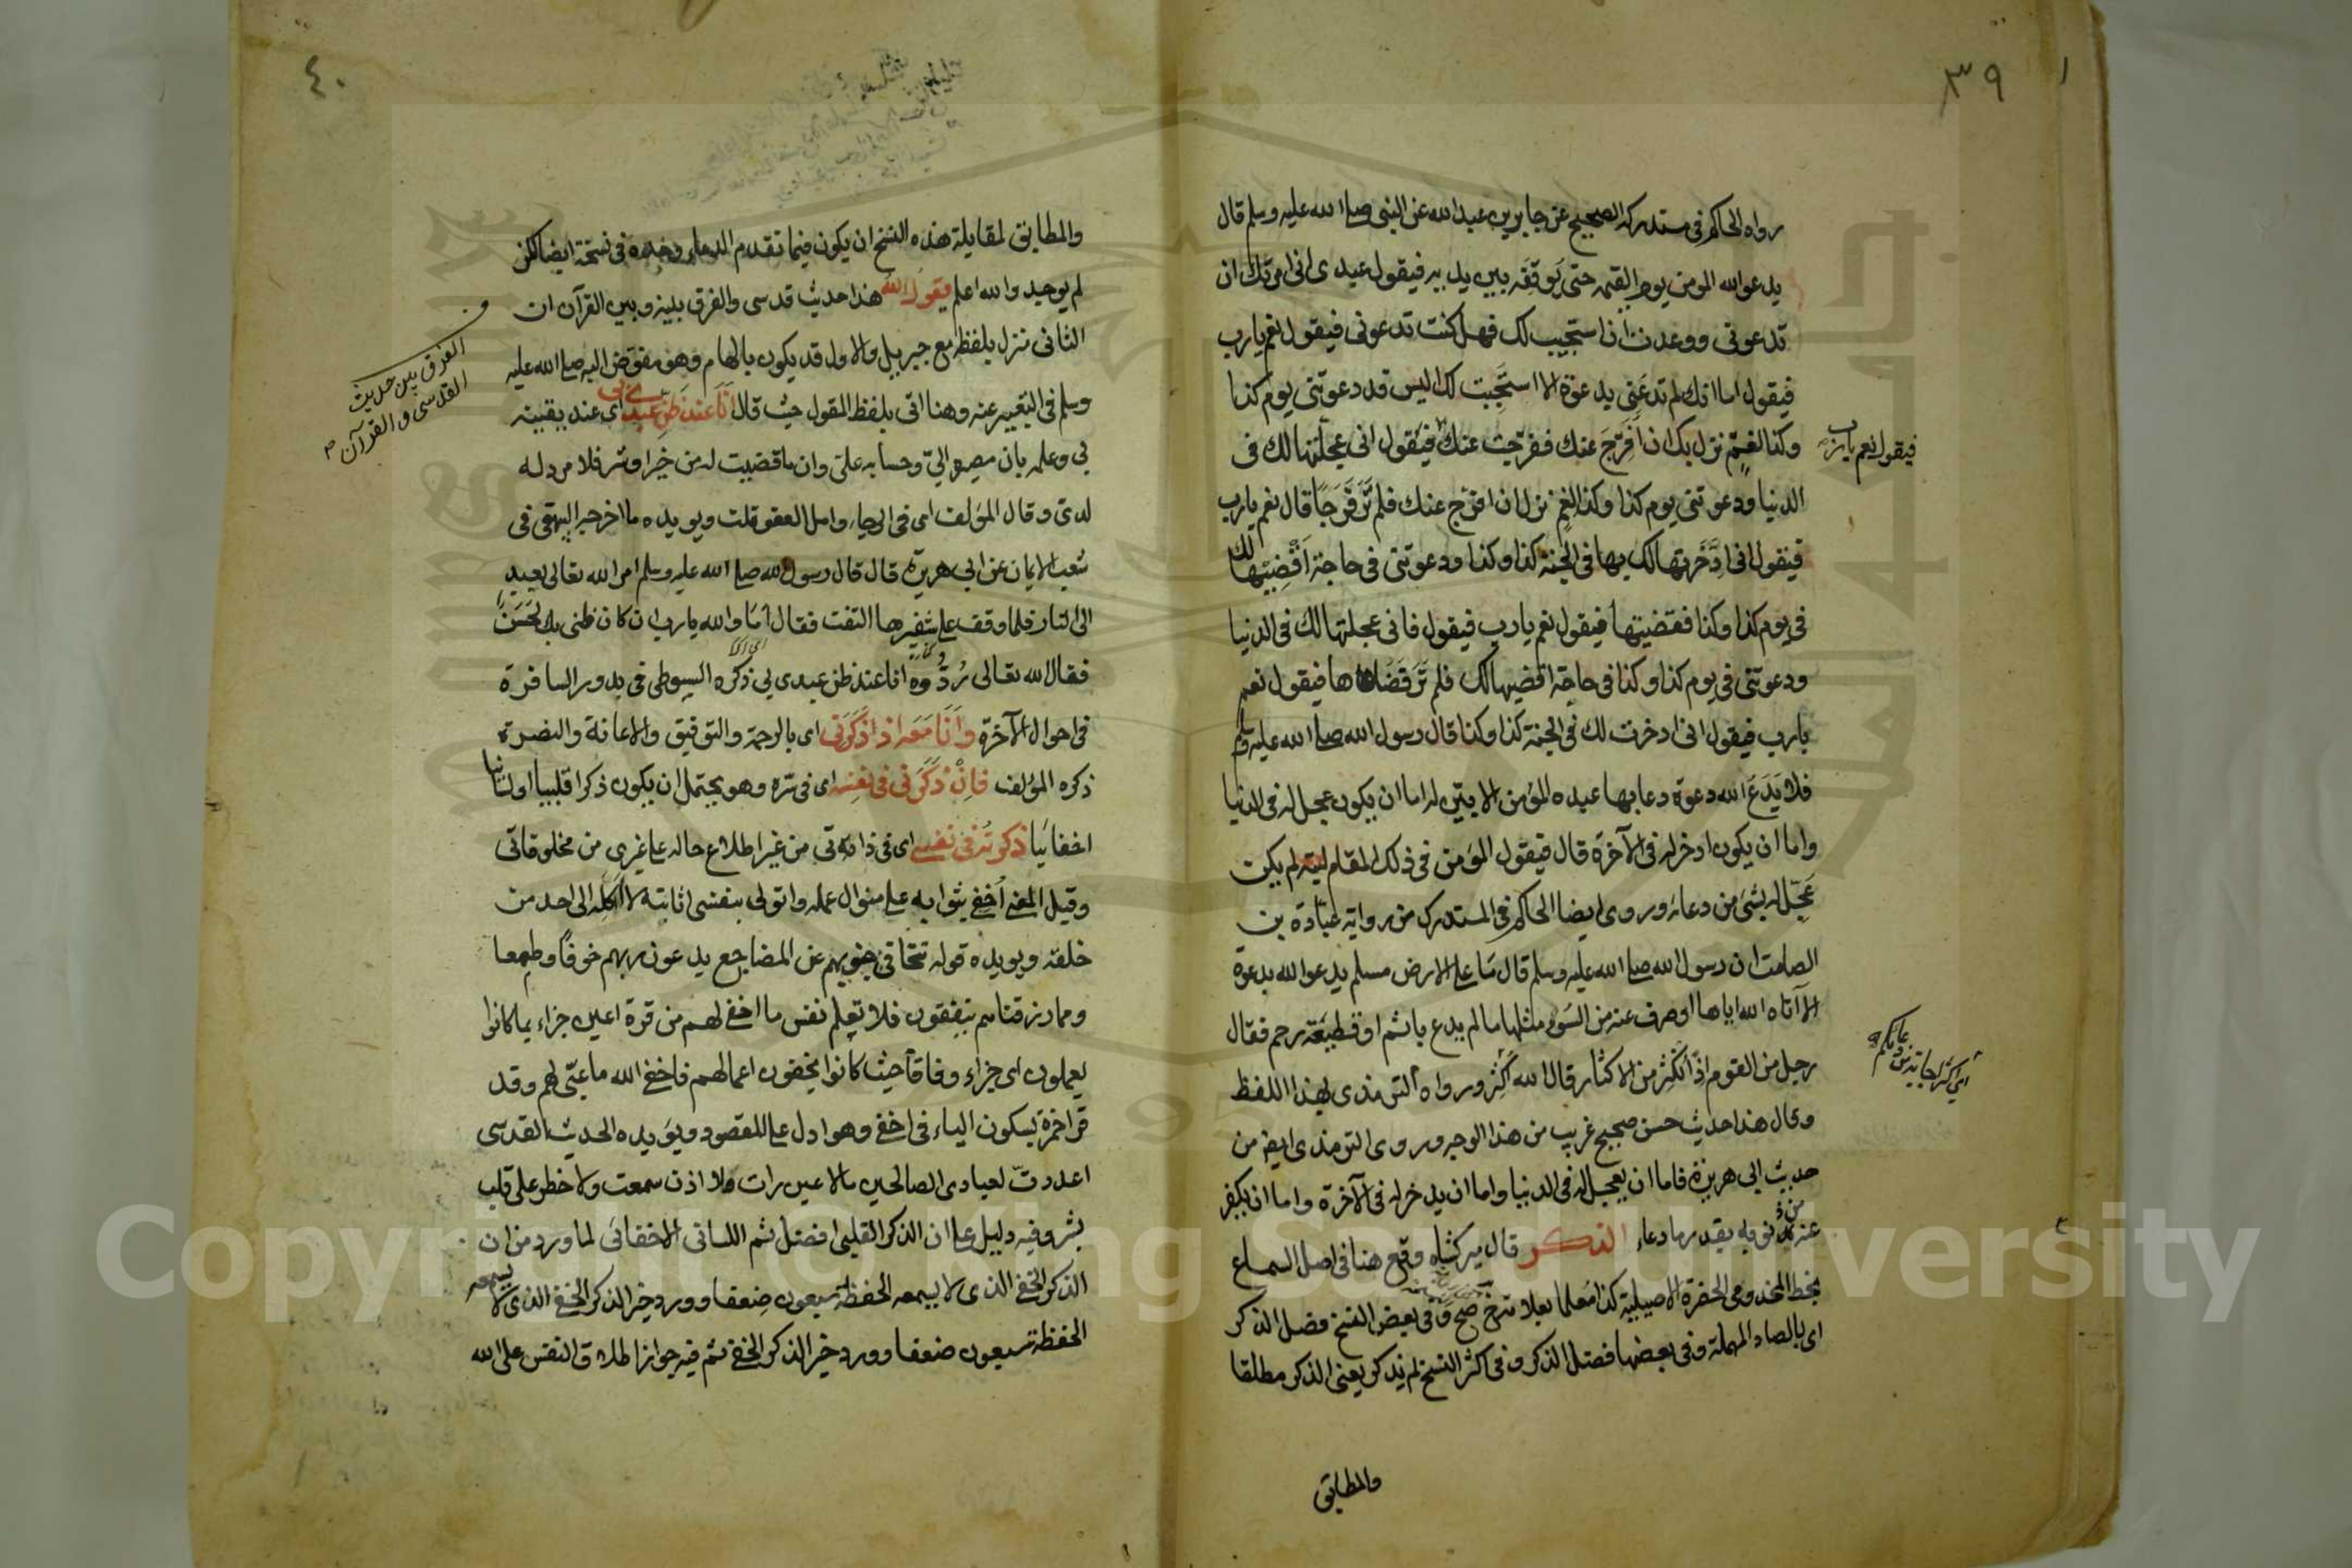 ٣٩
رواه الحاكم في مستدركه الصحيح عن جابر بن عبد الله عن النبي صلى الله عليه وسلم قال
يدعو الله المؤمن يوم القيمة حتى يوقفه بين يديه فيقول عبدي اني امرتك ان
تدعوني ووعدت ان استجيب لك فهل كنت تدعوني فيقول نعم يا رب
فيقول اما انك لم تدعني بدعوة الا استجبت لك اليس قد دعوتني يوم كذا
وكذا لغم نزل بك ان افرج عنك ففرجت عنك فيقول اني عجلتها لك في
فيقول نعم يا رب
الدنيا ودعوتني يوم كذا وكذا لغم نزل ان افرج عنك فلم تر فرجا قال نعم يا رب
فيقول اني ادخرتها لك بها في الجنة كذا وكذا ودعوتني في حاجة اقضيها لك
في يوم كذا وكذا فقضيتها فيقول نعم يا رب فيقول فاني عجلتها لك في الدنيا
ودعوتني في يوم كذا وكذا في حاجة اقضيها لك فلم تر قضاها فيقول نعم
يا رب فيقول اني ادخرت لك في الجنة كذا وكذا قال رسول الله صلى الله عليه وسلم
فلا يدع الله دعوة دعا بها عبده المؤمن الا بين له اما ان يكون عجل له في الدنيا
واما ان يكون ادخر له في الآخرة قال فيقول المؤمن في ذلك المقام ليته لم يكن
عجل له بشئ من دعائه وروى ايضا الحاكم في المستدرك من رواية عبادة بن
الصامت ان رسول الله صلى الله عليه وسلم قال ما على الارض مسلم يدعو الله بدعوة
الا آتاه الله اياها او صرف عنه من السوء مثلها ما لم يدع باثم او قطيعة رحم فقال
رجل من القوم اذا نكثر من الاكثار قال الله اكثر ورواه الترمذي بهذا اللفظ
اي اكثر اجابة من دعائكم
وقال هذا حديث حسن صحيح غريب من هذا الوجه وروى الترمذي ايض من
حديث ابي هريرة فاما ان يعجل له في الدنيا واما ان يدخر له في الآخرة واما ان يكفر
عنه من ذنوبه بقدر ما دعا الذكر قال ميركشاه وقع هنا في اصل السماع
بخط المخدومي الحضرة الاصيلية كذا معلما بعلامة صح وفي بعض النسخ فضل الذكر
اي بالصاد المهملة وفي بعضها فضل الذكر وفي اكثر النسخ لم يذكر يعني الذكر مطلقا
والمطابق
٤٠
والمطابق لمقابلة هذه النسخ ان يكون فيما تقدم الدعاء وحده في نسخة ايضا لكن
لم يوجد والله اعلم يقول الله هذا حديث قدسي والفرق بينه وبين القرآن ان
الثاني نزل بلفظه مع جبريل والاول قد يكون بالهام وهو مفوض اليه صلى الله عليه
الفرق بين حديث
القدسي والقرآن
وسلم في التعبير عنه وهنا اتى بلفظ المقول حيث قال انا عند ظن عبدي بي اي عند يقينه
بي وعلمه بان مصيره الي وحسابه علي وان ما قضيت له من خير او شر فلا مرد له
لدي وقال المؤلف اي في الرجاء وامل العفو قلت ويؤيده ما اخرجه البيهقي في
شعب الايمان عن ابي هريرة قال قال رسول الله صلى الله عليه وسلم امر الله تعالى بعبد
الى النار فلما وقف على شفيرها التفت فقال اما والله يا رب ان كان ظني بك لحسن
فقال الله تعالى ردوه انا عند ظن عبدي بي ذكره السيوطي في بدور السافرة
في احوال الآخرة وانا معه اذا ذكرني اي بالرحمة والتوفيق والاعانة والنصرة
ذكره المؤلف فان ذكرني في نفسه اي في سره وهو يحتمل ان يكون ذكرا قلبيا او لسانيا
اخفائيا ذكرته في نفسي اي في ذاتي من غير اطلاع حاله على غيري من مخلوقاتي
وقيل المعنى اخفي ثوابه على منوال عمله واتولى بنفسي اثابته لا اكله الى احد من
خلقه ويؤيده قوله تتجافى جنوبهم عن المضاجع يدعون ربهم خوفا وطمعا
ومما رزقناهم ينفقون فلا تعلم نفس ما اخفي لهم من قرة اعين جزاء بما كانوا
يعملون اي جزاء وفاقا حيث كانوا يخفون اعمالهم فاخفى الله ما عبى لهم وقد
قرا حمزة بسكون الياء في اخفي وهو ادل على المقصود ويؤيده الحديث القدسي
اعددت لعبادي الصالحين ما لا عين رات ولا اذن سمعت ولا خطر على قلب
بشر وفيه دليل على ان الذكر القلبي افضل ثم اللساني الاخفائي لما ورد من ان
الذكر الخفي الذي لا يسمعه الحفظة سبعون ضعفا وورد خير الذكر الخفي الذي لا يسمعه
الحفظة سبعون ضعفا وورد خير الذكر الخفي ثم فيه جواز اطلاق النفس على الله
Copyright © King Saud University